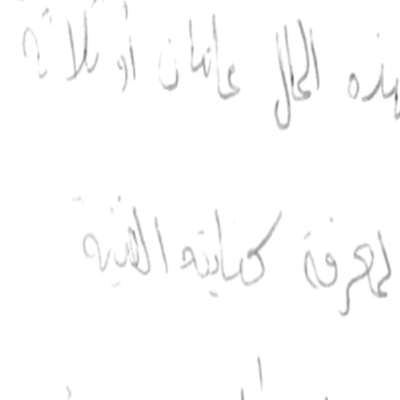 هذه الحال عامان أو ثلاثة
لمعرفة كفايته الفنية